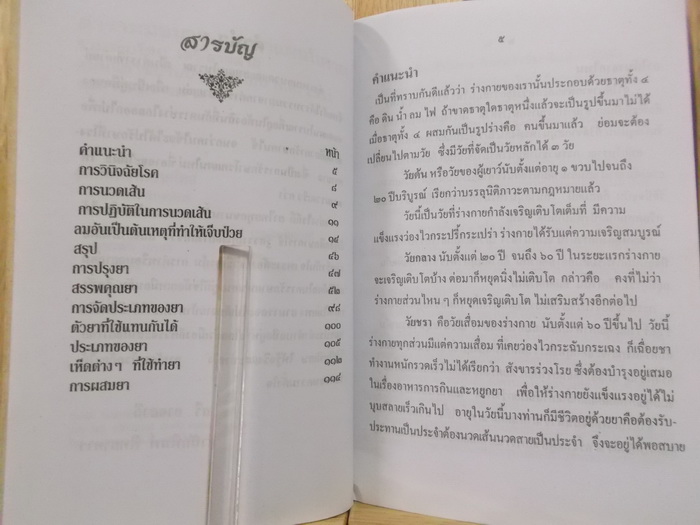 สารบัญ
หน้า
คำแนะนำ ๕
การวินิจฉัยโรค ๘
การนวดเส้น ๙
การปฏิบัติในการนวดเส้น ๑๑
ลมอันเป็นต้นเหตุที่ทำให้เจ็บป่วย ๑๘
สรุป ๔๖
การปรุงยา ๔๗
สรรพคุณยา ๕๒
การจัดประเภทของยา ๙๘
ตัวยาที่ใช้แทนกันได้ ๑๐๐
ประเภทของยา ๑๐๕
เห็ดต่างๆ ที่ใช้ทำยา ๑๑๒
การผสมยา ๑๑๘
๕
คำแนะนำ
เป็นที่ทราบกันดีแล้วว่า ร่างกายของเรานั้นประกอบด้วยธาตุทั้ง ๔
คือ ดิน น้ำ ลม ไฟ ถ้าขาดธาตุใดธาตุหนึ่งแล้วจะเป็นรูปขึ้นมาไม่ได้
เมื่อธาตุทั้ง ๔ ผสมกันเป็นรูปร่างคือ คนขึ้นมาแล้ว ย่อมจะต้อง
เปลี่ยนไปตามวัย ซึ่งมีวัยที่จัดเป็นวัยหลักได้ ๓ วัย
วัยต้น หรือวัยของผู้เยาว์นับตั้งแต่อายุ ๑ ขวบไปจนถึง
๒๐ ปีบริบูรณ์ เรียกว่าบรรลุนิติภาวะตามกฎหมายแล้ว
วัยนี้เป็นวัยที่ร่างกายกำลังเจริญเติบโตเต็มที่ มีความ
แข็งแรงว่องไวกระปรี้กระเปร่า ร่างกายได้รับแต่ความเจริญสมบูรณ์
วัยกลาง นับตั้งแต่ ๒๐ ปี จนถึง ๖๐ ปี ในระยะแรกร่างกาย
จะเจริญเติบโตบ้าง ต่อมาก็หยุดนิ่งไม่เติบโต กล่าวคือ คงที่ไม่ว่า
ร่างกายส่วนไหน ๆ ก็หยุดเจริญเติบโต ไม่เสริมสร้างอีกต่อไป
วัยชรา คือวัยเสื่อมของร่างกาย นับตั้งแต่ ๖๐ ปีขึ้นไป วัยนี้
ร่างกายทุกส่วนมีแต่ความเสื่อม ที่เคยว่องไวกระฉับกระเฉง ก็เฉื่อยชา
ทำงานหนักรวดเร็วไม่ได้เรียกว่า สังขารร่วงโรย ซึ่งต้องบำรุงอยู่เสมอ
ในเรื่องอาหารการกินและหยูกยา เพื่อให้ร่างกายยังแข็งแรงอยู่ได้ไม่
บุบสลายเร็วเกินไป อายุในวัยนี้บางท่านก็มีชีวิตอยู่ด้วยยาคือต้องรับ-
ประทานเป็นประจำต้องนวดเส้นนวดสายเป็นประจำ จึงจะอยู่ได้พอสบาย